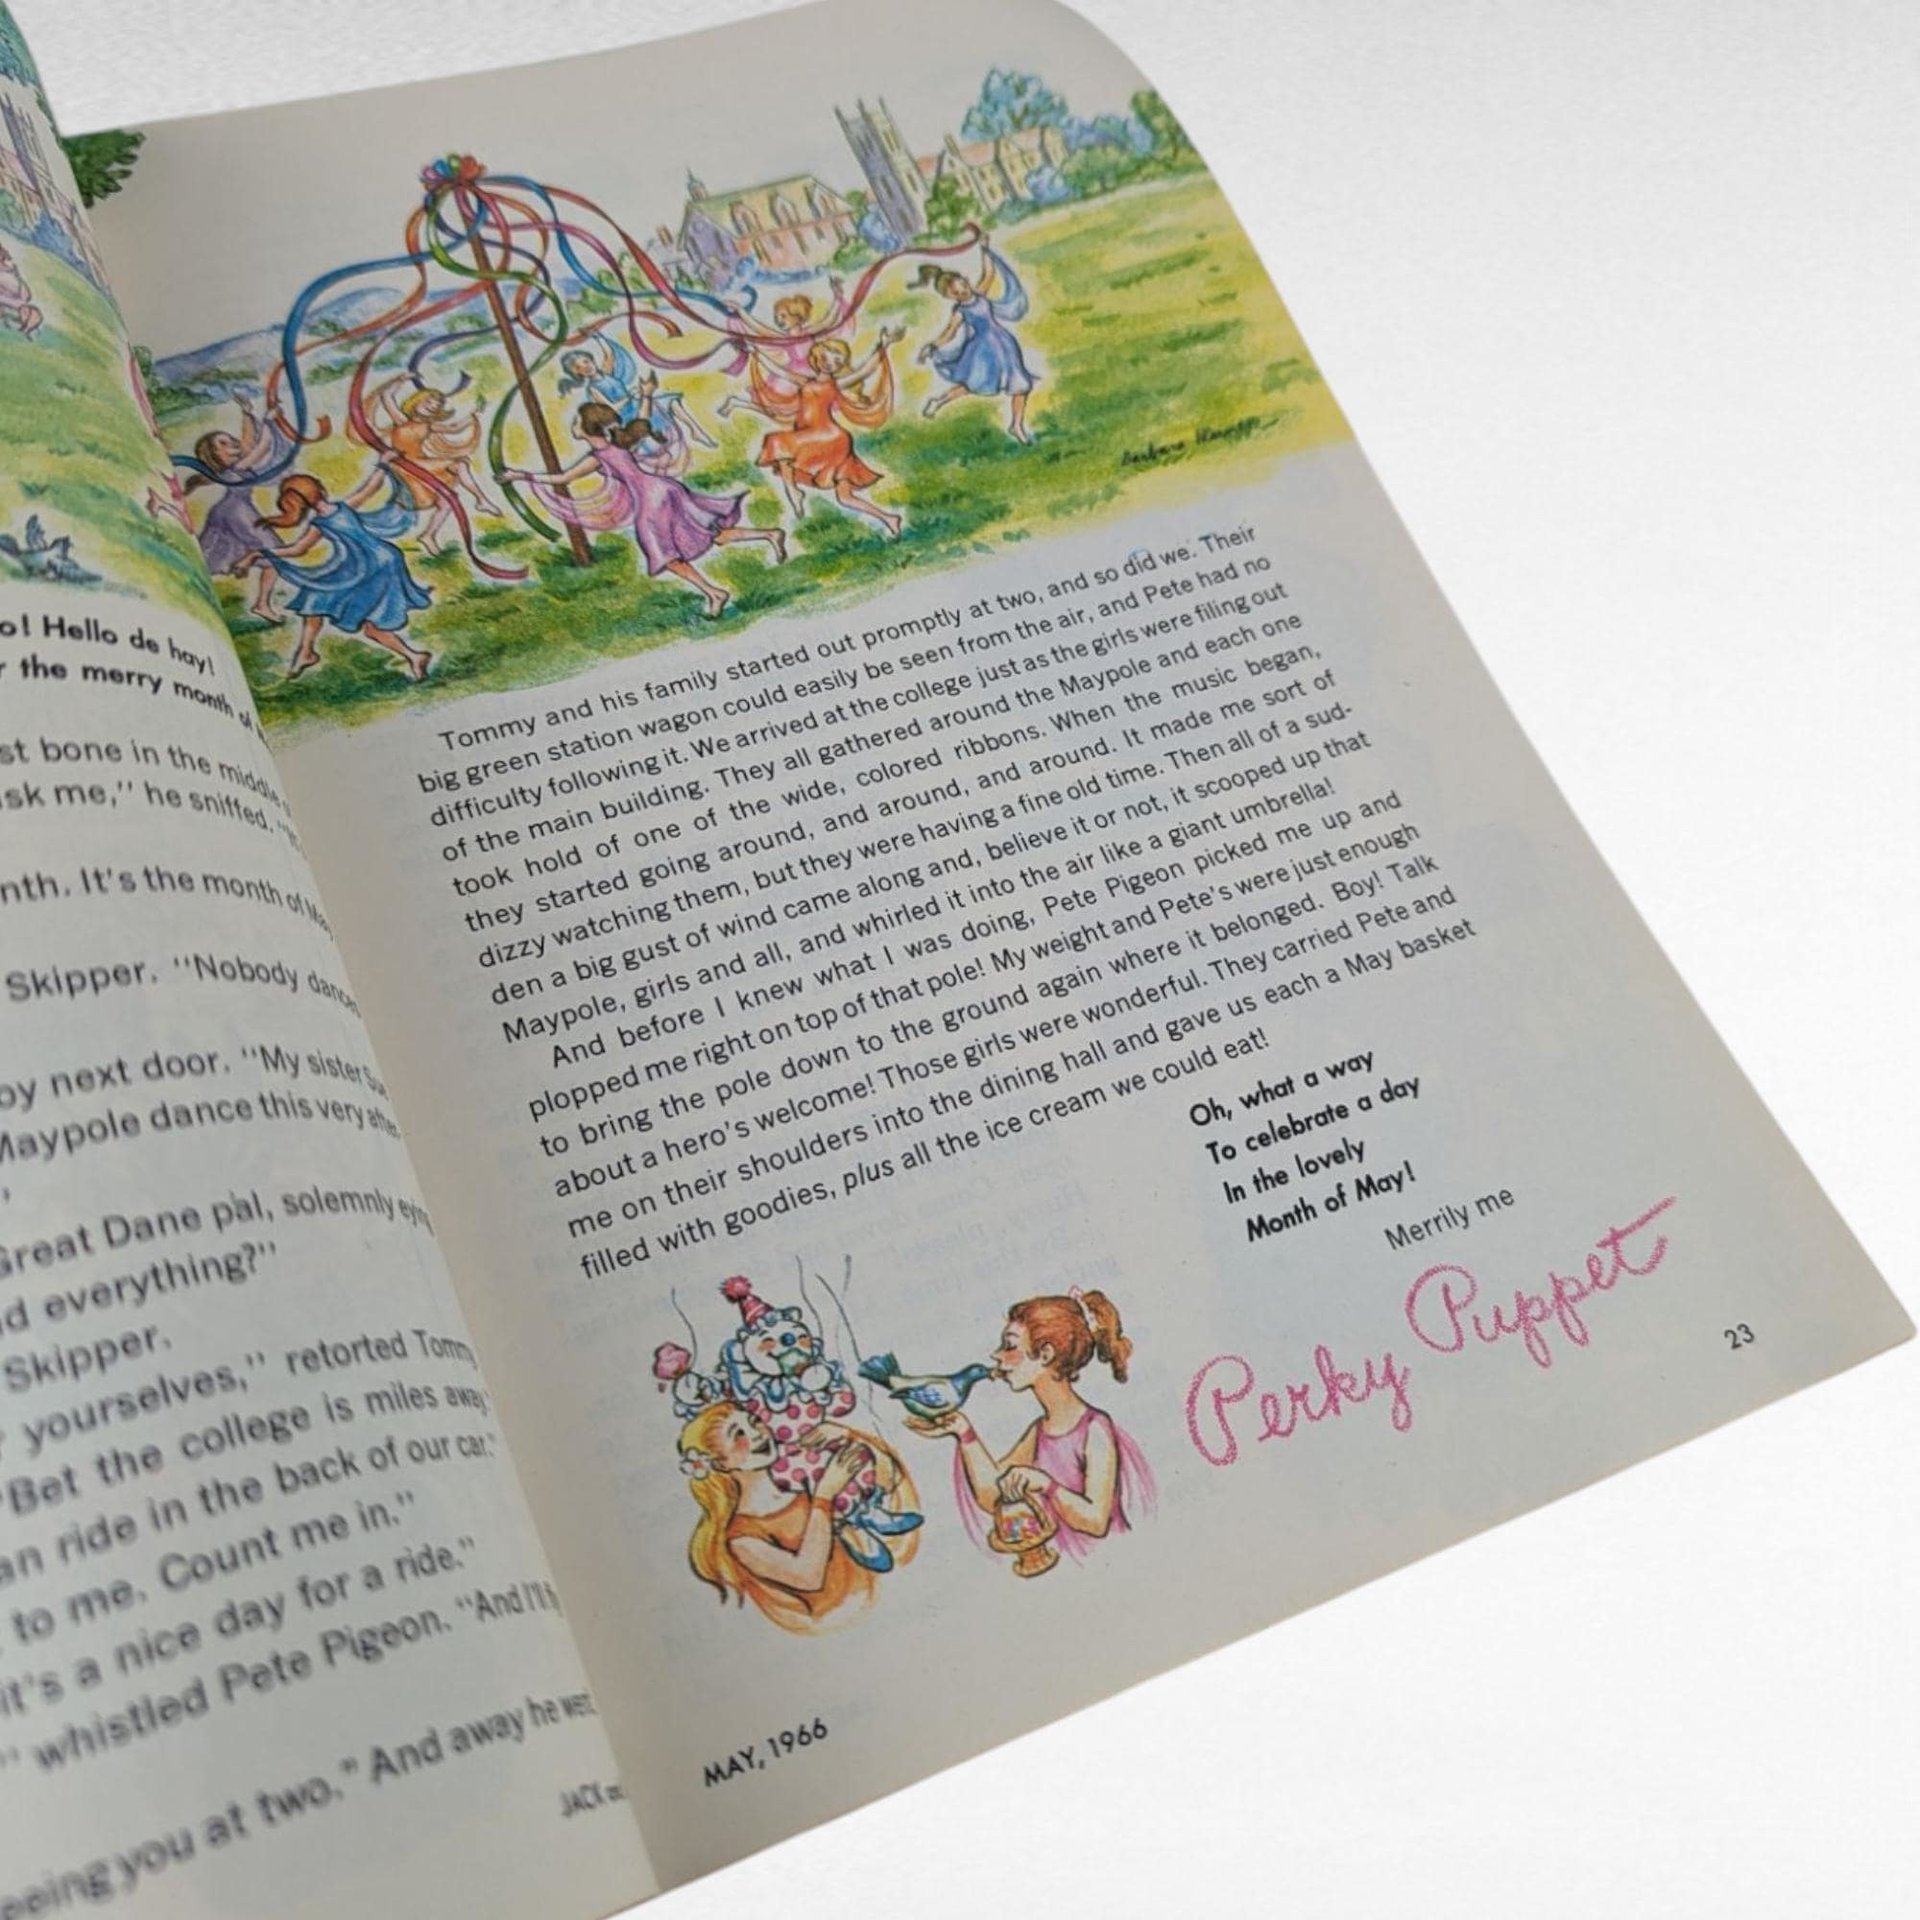 o! Hello de hay!
the merry month
st bone in the middle
sk me," he sniffed.
nth. It's the month of May
Skipper. "Nobody dances
oy next door. "My sister Sue
Maypole dance this very
Great Dane pal, solemnly eying
d everything?"
Skipper.
yourselves," retorted Tommy
"Bet the college is miles away."
an ride in the back of our car."
to me. Count me in."
it's a nice day for a ride."
" whistled Pete Pigeon. "And I'll
eeing you at two." And away he went.
JACK
Barbara
Tommy and his family started out promptly at two, and so did we. Their
big green station wagon could easily be seen from the air, and Pete had no
difficulty following it. We arrived at the college just as the girls were filing out
of the main building. They all gathered around the Maypole and each one
took hold of one of the wide, colored ribbons. When the music began,
they started going around, and around, and around. It made me sort of
dizzy watching them, but they were having a fine old time. Then all of a sud-
den a big gust of wind came along and, believe it or not, it scooped up that
Maypole, girls and all, and whirled it into the air like a giant umbrella!
And before I knew what I was doing, Pete Pigeon picked me up and
plopped me right on top of that pole! My weight and Pete's were just enough
to bring the pole down to the ground again where it belonged. Boy! Talk
about a hero's welcome! Those girls were wonderful. They carried Pete and
me on their shoulders into the dining hall and gave us each a May basket
filled with goodies, plus all the ice cream we could eat!
Oh, what a way
To celebrate a day
In the lovely
Month of May!
Merrily me
Perky Puppet
MAY, 1966
23